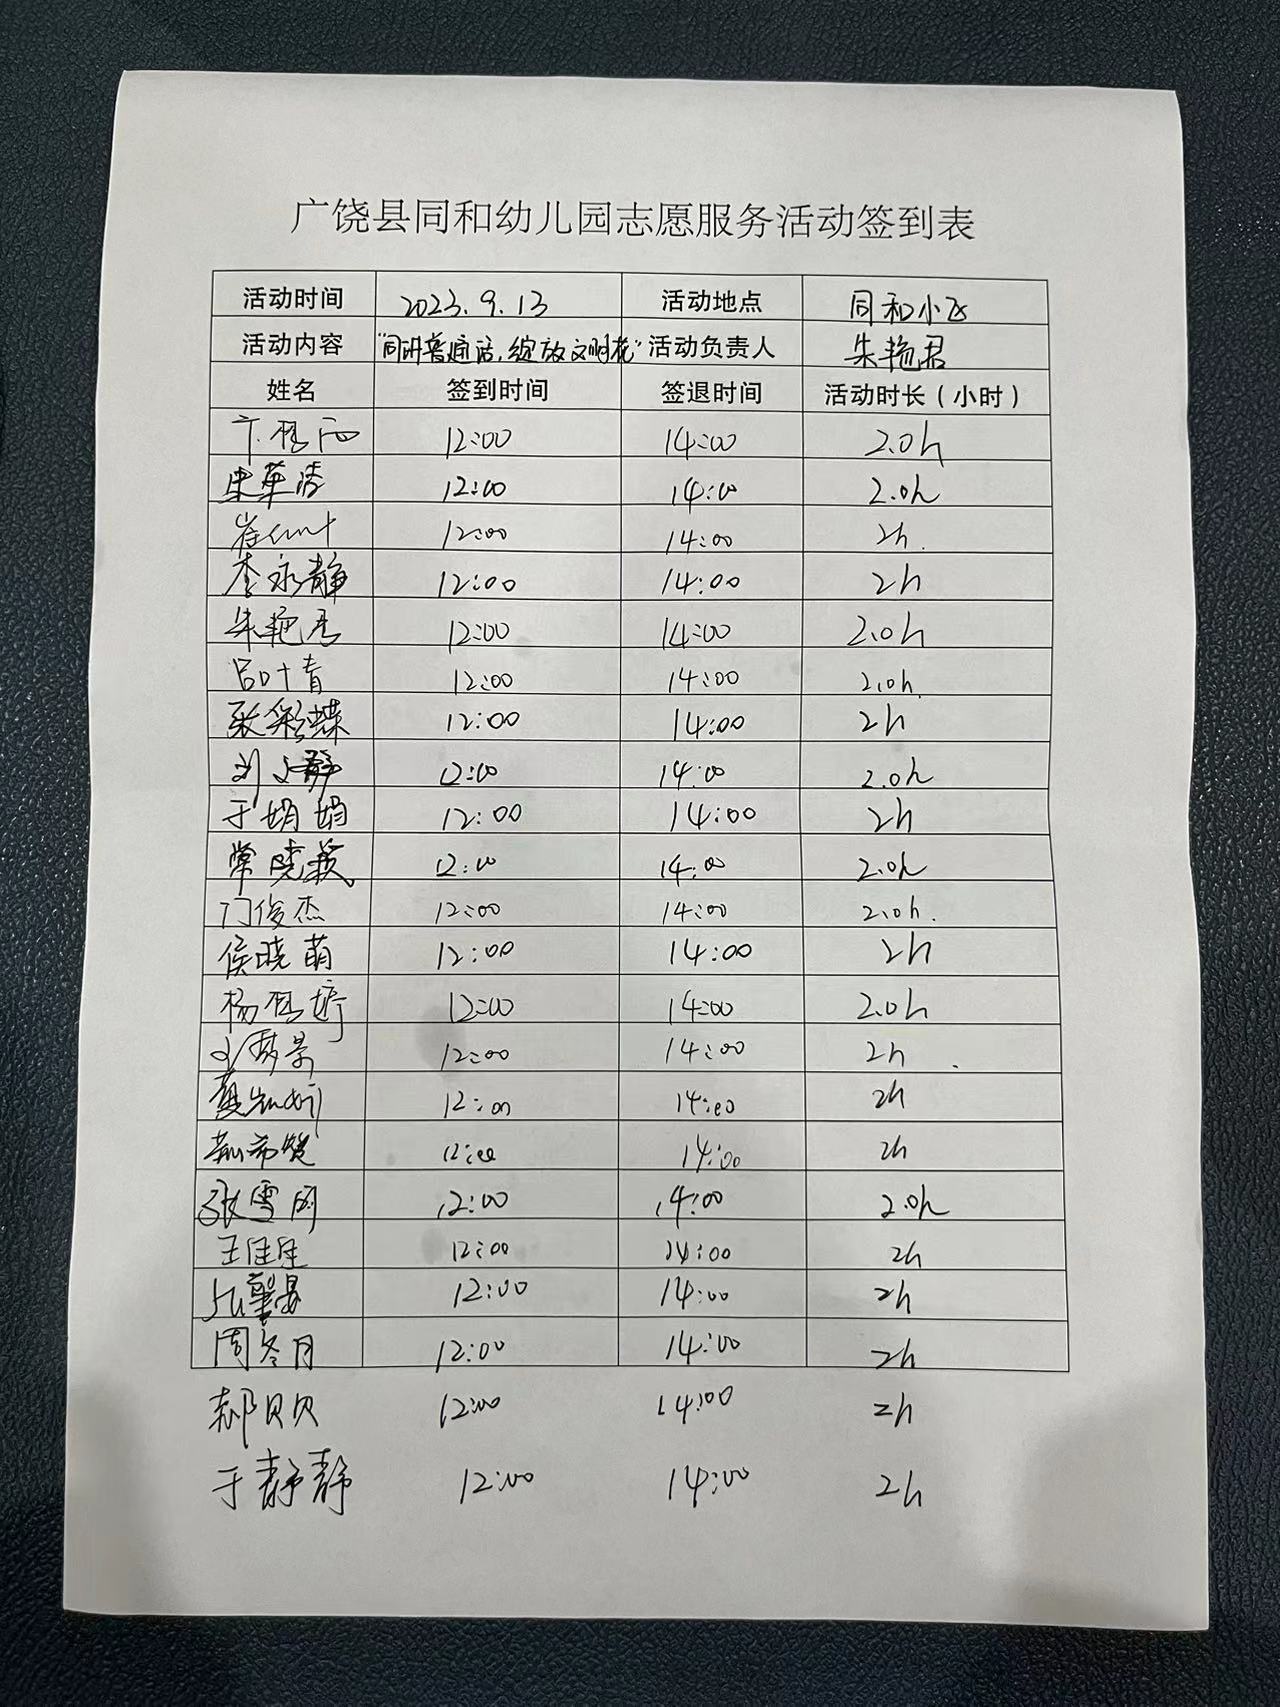 广饶县同和幼儿园志愿服务活动签到表
活动时间 2023.9.13 活动地点 同和小区
活动内容 "同讲普通话,绽放文明花" 活动负责人 朱艳君
姓名 签到时间 签退时间 活动时长(小时)
12:00 14:00 2.0h
12:00 14:00 2.0h
12:00 14:00 2h.
李永静 12:00 14:00 2h
朱艳君 12:00 14:00 2.0h
吕叶青 12:00 14:00 2.0h.
张彩蝶 12:00 14:00 2h
刘文静 12:00 14:00 2.0h
于娟娟 12:00 14:00 2h
常晓 12:00 14:00 2.0h
门俊杰 12:00 14:00 2.0h.
侯晓萌 12:00 14:00 2h
杨 婷 12:00 14:00 2.0h
12:00 14:00 2h
12:00 14:00 2h
12:00 14:00 2h
张雪 12:00 14:00 2.0h
王佳佳 12:00 14:00 2h
12:00 14:00 2h
周冬月 12:00 14:00 2h
郝贝贝 12:00 14:00 2h
于静静 12:00 14:00 2h